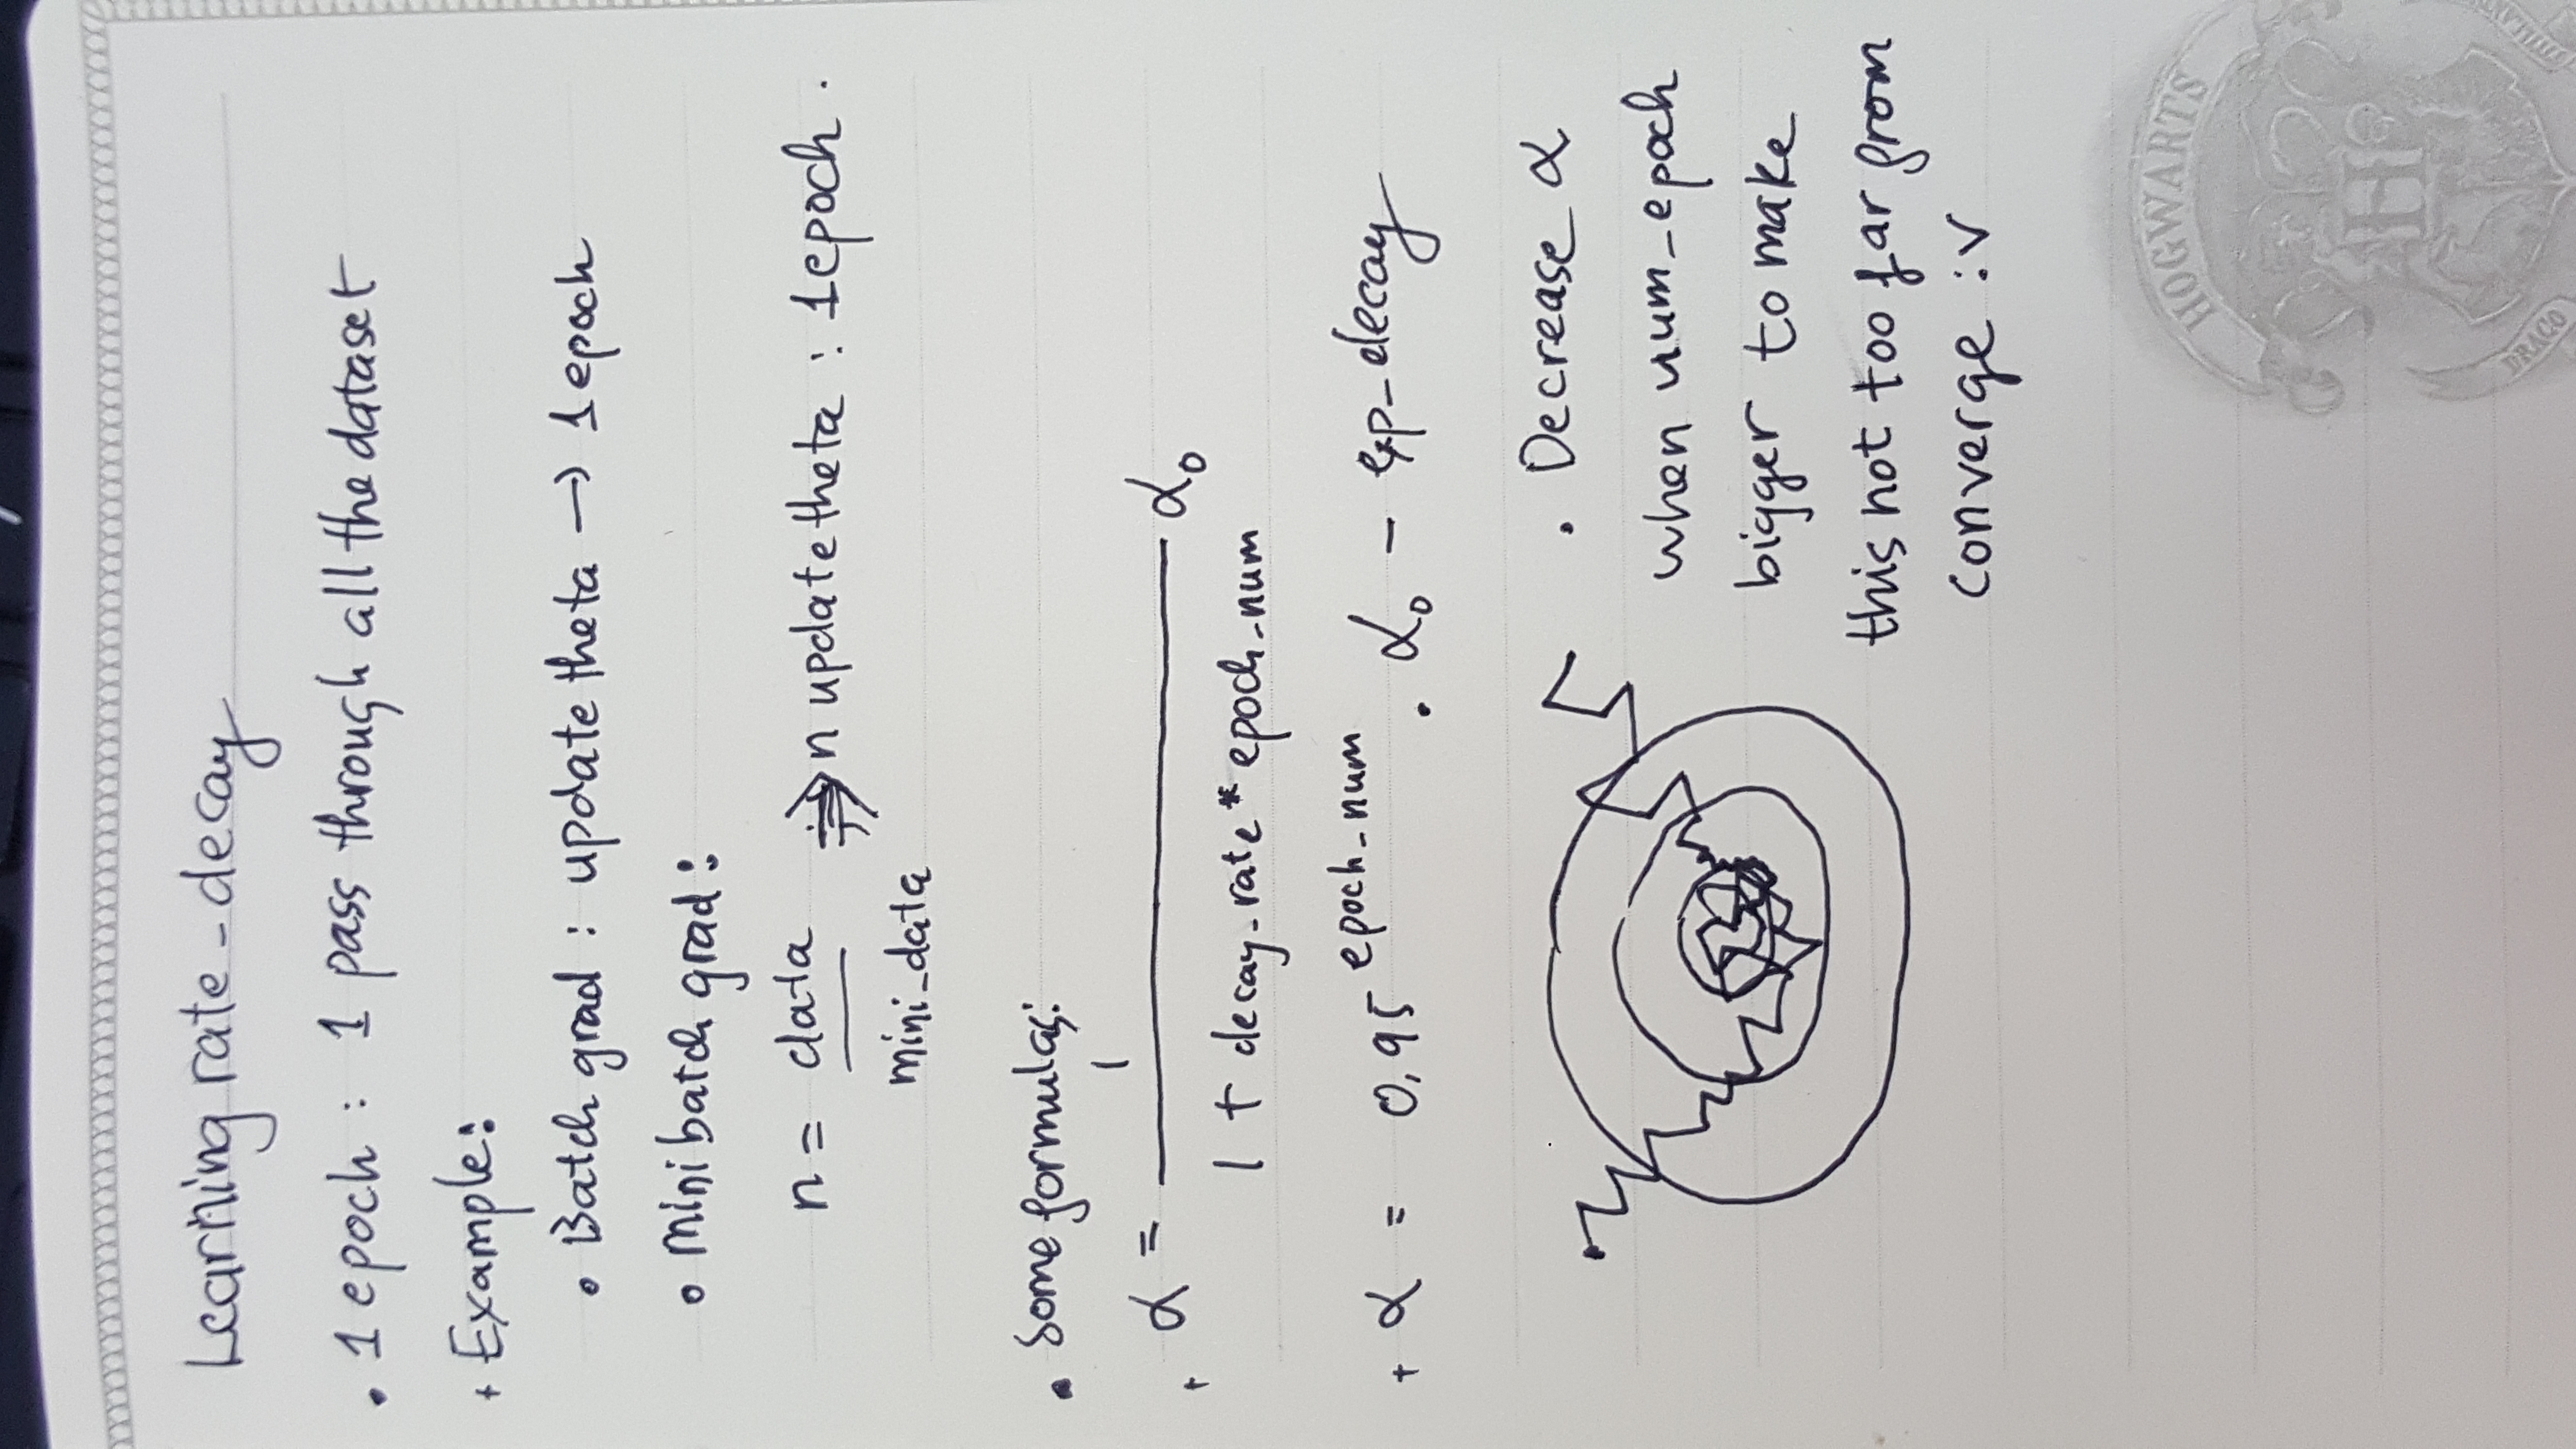 Learning rate_decay
. 1 epoch : 1 pass through all the dataset
+ Example:
• Batch grad : update theta → 1 epoch
o Mini batch grad :
n = data / mini_data ⇒ n update theta : 1 epoch .
. Some formulas:
+ α = 1 / 1 + decay_rate * epoch_num α₀
+ α = 0,95^epoch_num . α₀ - exp_decay
. Decrease α
when num_epoch
bigger to make
this not too far from
converge :v
HOGWARTS
H
DRACO